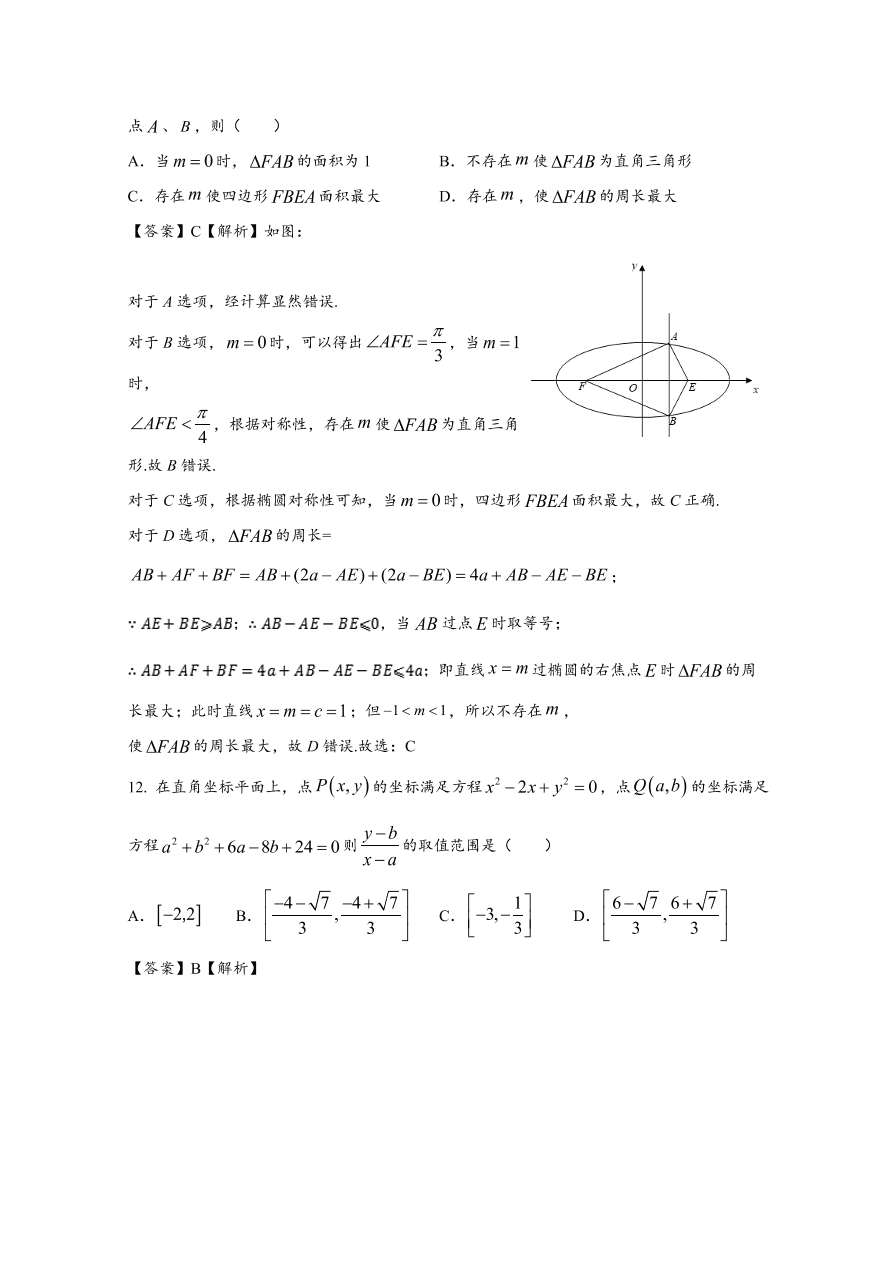 点 A 、 B ，则（　　）
A．当 m = 0 时， ΔFAB 的面积为 1　　B．不存在 m 使 ΔFAB 为直角三角形
C．存在 m 使四边形 FBEA 面积最大　　D．存在 m ，使 ΔFAB 的周长最大
【答案】C【解析】如图：
y
对于 A 选项，经计算显然错误.
对于 B 选项， m = 0 时，可以得出 ∠AFE = π/3 ，当 m = 1
A
时，
F O E x
∠AFE < π/4 ，根据对称性，存在 m 使 ΔFAB 为直角三角
B
形.故 B 错误.
对于 C 选项，根据椭圆对称性可知，当 m = 0 时，四边形 FBEA 面积最大，故 C 正确.
对于 D 选项， ΔFAB 的周长=
AB + AF + BF = AB + (2a − AE) + (2a − BE) = 4a + AB − AE − BE ；
∵ AE + BE⩾AB；∴ AB − AE − BE⩽0，当 AB 过点 E 时取等号；
∴ AB + AF + BF = 4a + AB − AE − BE⩽4a；即直线 x = m 过椭圆的右焦点 E 时 ΔFAB 的周
长最大；此时直线 x = m = c = 1 ；但 −1 < m < 1 ，所以不存在 m ，
使 ΔFAB 的周长最大，故 D 错误.故选：C
12. 在直角坐标平面上，点 P(x, y) 的坐标满足方程 x² − 2x + y² = 0 ，点 Q(a,b) 的坐标满足
方程 a² + b² + 6a − 8b + 24 = 0 则 (y − b)/(x − a) 的取值范围是（　　）
A．[−2,2]　　B．[(−4 − √7)/3, (−4 + √7)/3]　　C．[−3, −1/3]　　D．[(6 − √7)/3, (6 + √7)/3]
【答案】B【解析】